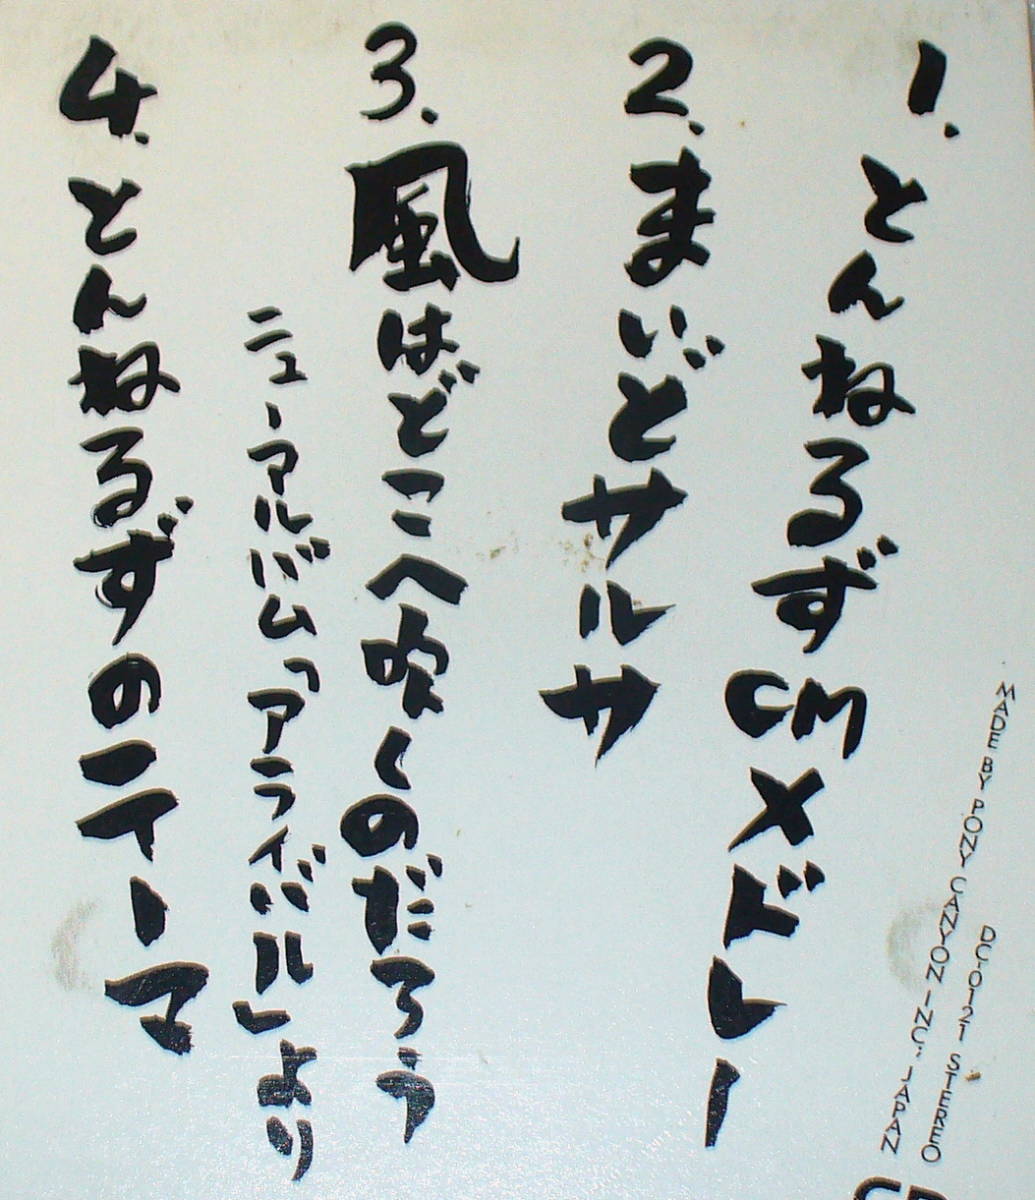 1.とんねるずCMメドレー
2.まいどサルサ
3.風はどこへ吹くのだろう
ニュー・アルバム「アライバル」より
4.とんねるずのテーマ
DC-0121 STEREO
MADE BY PONY CANYON INC., JAPAN